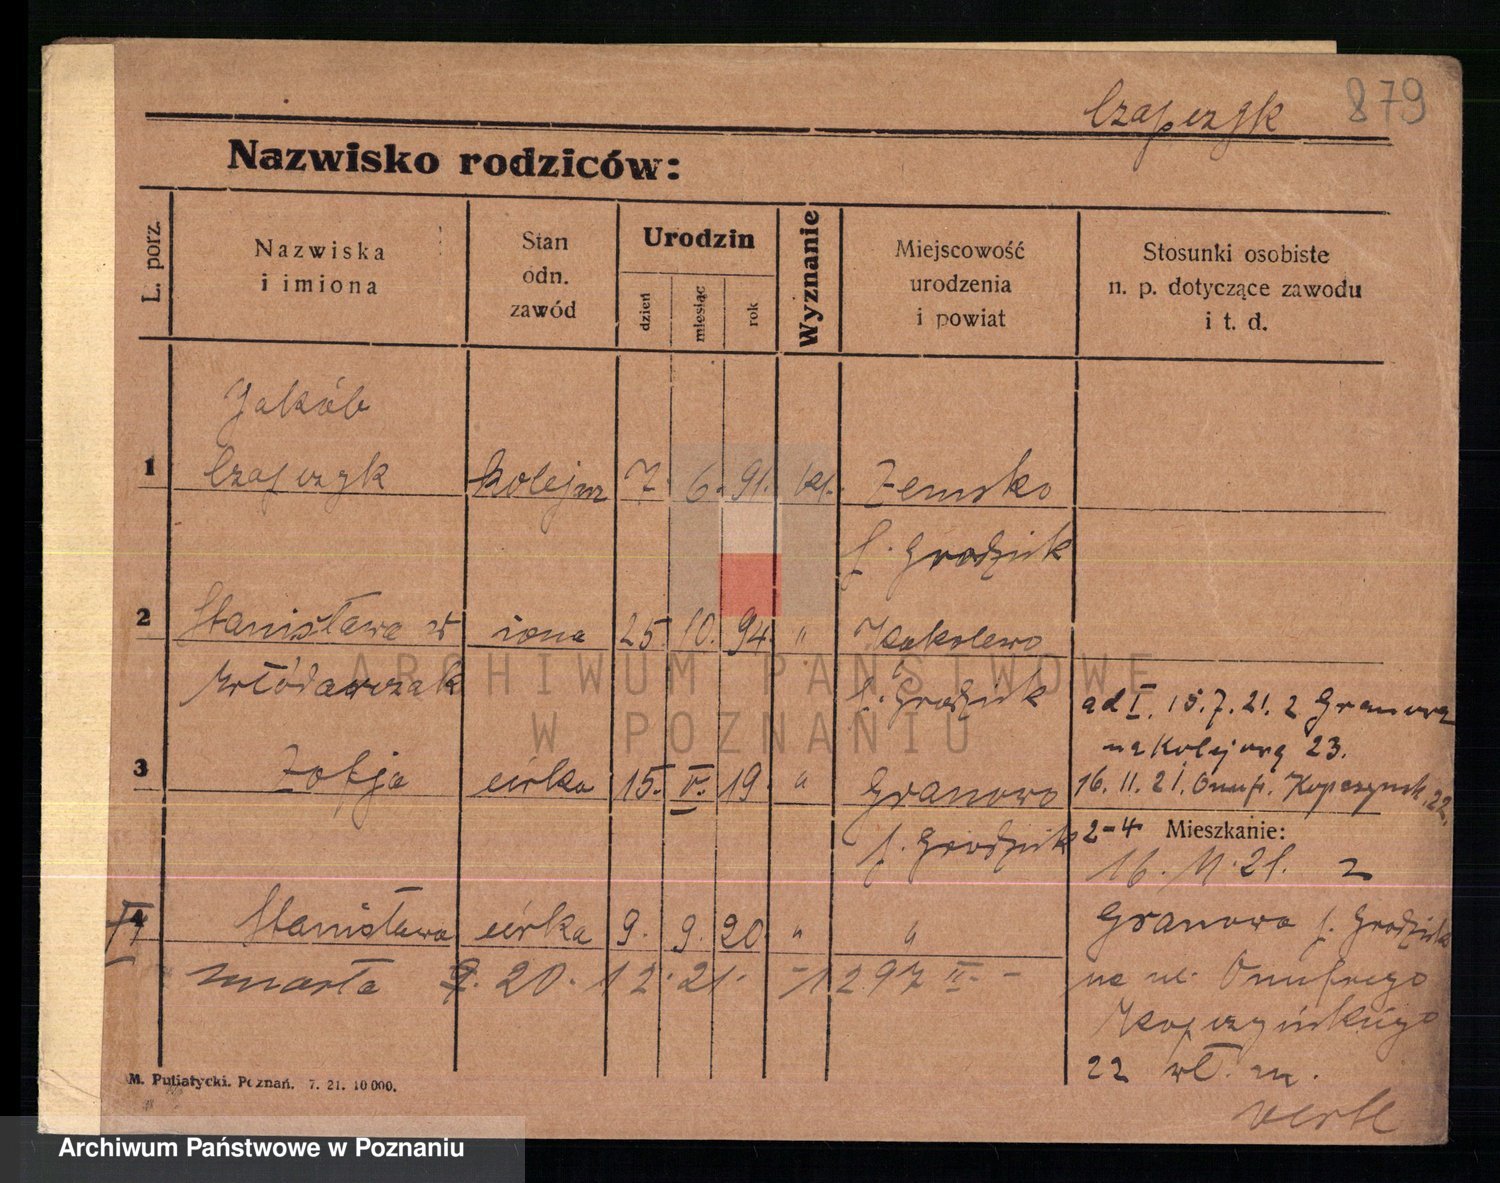 Czapczyk 879
Nazwisko rodziców:
L. porz.
Nazwiska
i imiona
Stan
odn.
zawód
Urodzin
dzień
miesiąc
rok
Wyznanie
Miejscowość
urodzenia
i powiat
Stosunki osobiste
n. p. dotyczące zawodu
i t. d.
Jakób
1 Czapczyk kolejarz 7. 6. 91. kat. Zemsko
p. Grodzisk
2 Stanisława z żona 25 10. 94. " Kąkolewo
Włódarczak p. Grodzisk
ad I. 15.7.21. z Granowa
na Kolejową 23.
3 Zofja córka 15. IV. 19. " Granowo
16. 11. 21. Onufr. Kopczyńsk. 22.
p. Grodzisk 2-4 Mieszkanie:
16. 11. 21. z
4 Stanisława córka 9. 9. 20. " "
Granowa p. Grodzisk
zmarła 20. 12. 21. - 1297 II. -
na ul. Onufrego
Kopczyńskiego
22 wł. m.
verte
M. Putiatycki. Poznań. 7. 21. 10 000.
ARCHIWUM PAŃSTWOWE
W POZNANIU
Archiwum Państwowe w Poznaniu